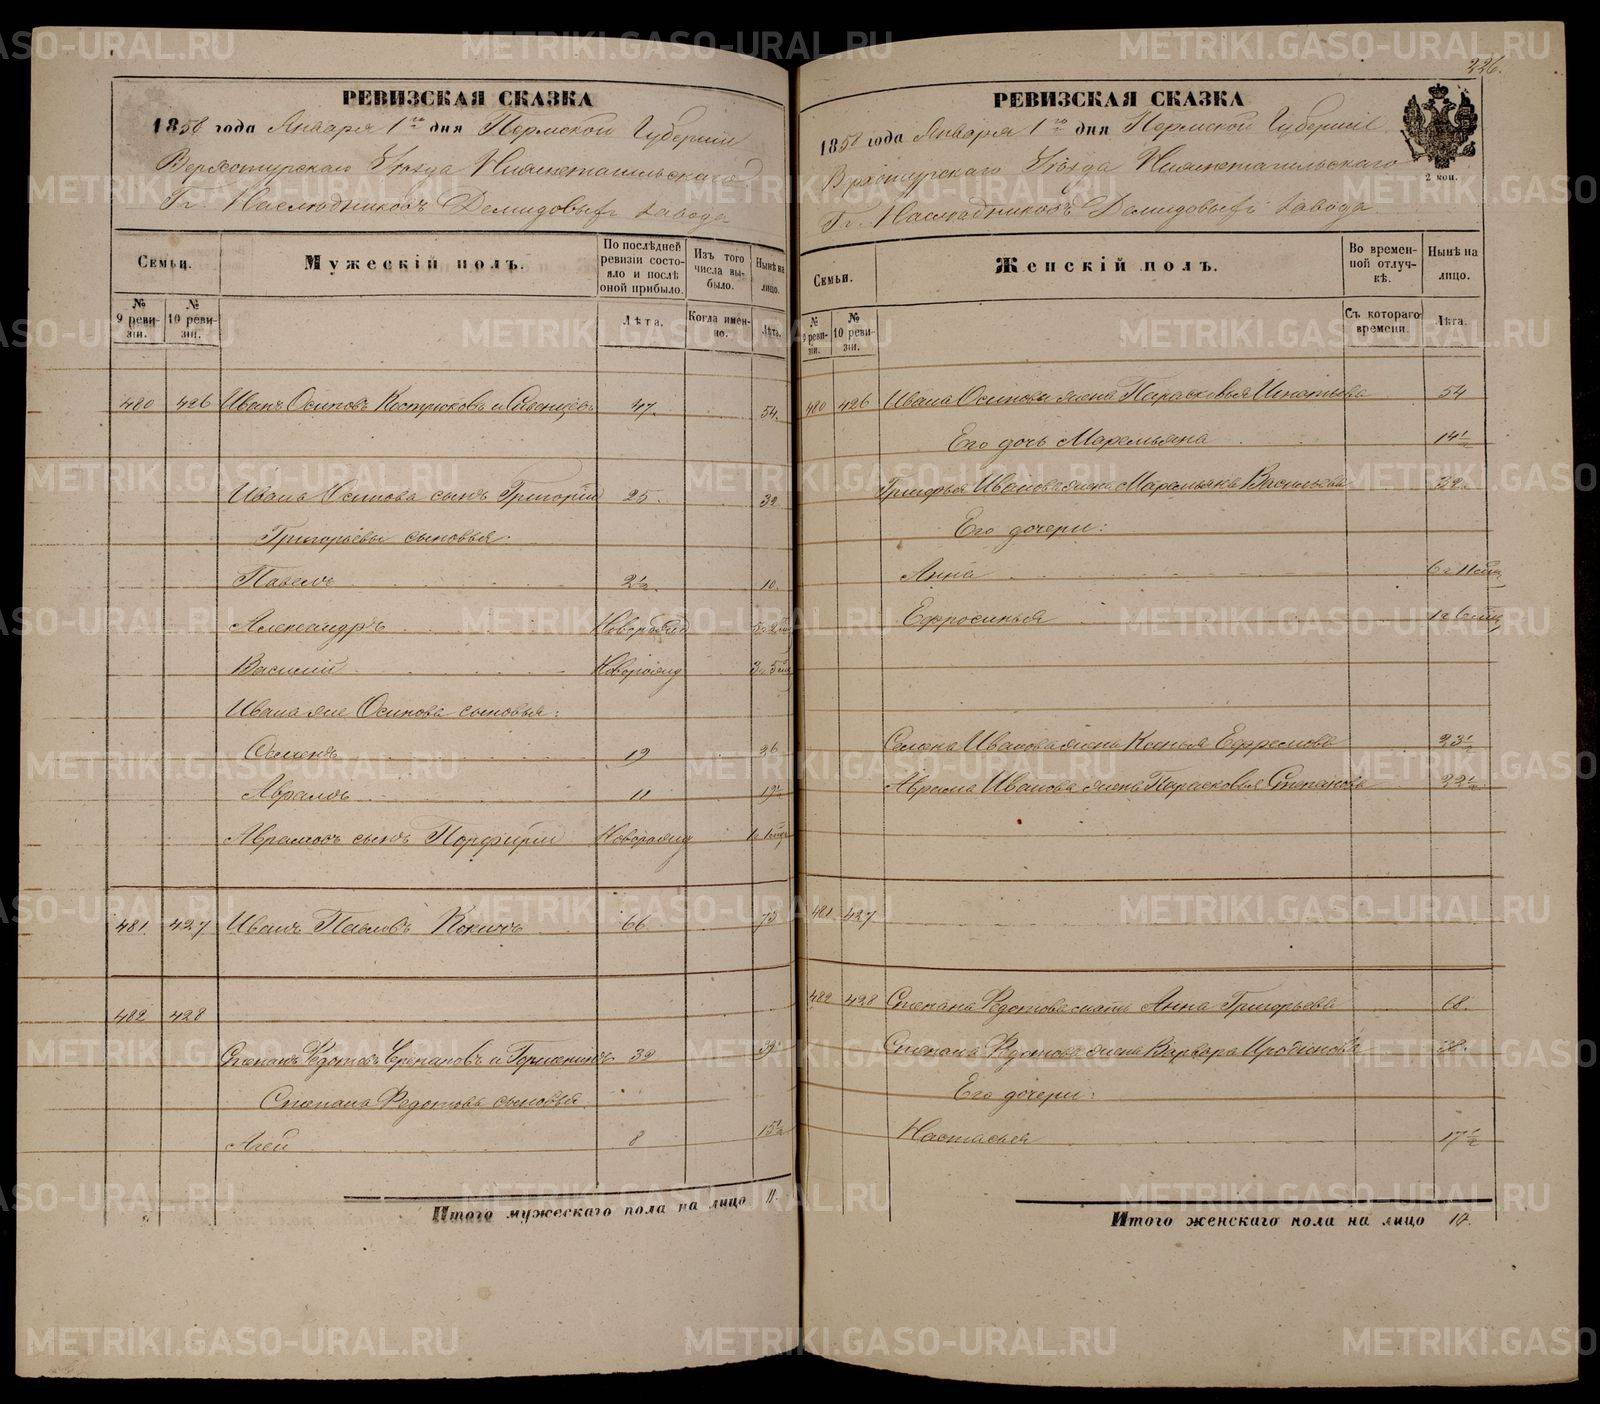 226.
РЕВИЗСКАЯ СКАЗКА
1858 года Января 1го дня Пермской Губернии
Верхотурскаго Уѣзда Нижнетагильскаго
Гг. Наслѣдниковъ Демидовыхъ завода
Семьи.
Мужескій полъ.
По послѣдней ревизіи состояло и послѣ оной прибыло.
Изъ того числа выбыло.
Нынѣ на лицо.
№ 9 ревизіи.
№ 10 ревизіи.
Лѣта.
Когда именно.
Лѣта.
480 426 Иванъ Осиповъ Костюковъ и 47. 54.
Ивана Осипова сынъ Григорій 25. 32
Григорьевы сыновья:
Павелъ 2½. 10.
Александръ Новорожд 5 и 2 мц
Василій Новорожд 3 и 5 мц
Ивана же Осипова сыновья:
Семенъ 19 26
Абрамъ 11 19½
Абрамовъ сынъ Порфирій Новорожд
481. 427 Иванъ Павловъ 66 73
482 428
Степанъ Федотовъ Степановъ и 32 39
Степана Федотова сыновья
Агей 8 15½
Итого мужескаго пола на лицо 11.
РЕВИЗСКАЯ СКАЗКА
1858 года Января 1го дня Пермской Губерніи
Верхотурскаго Уѣзда Нижнетагильскаго
Гг. Наслѣдниковъ Демидовыхъ завода
2 коп.
Семьи.
Женскій полъ.
Во временной отлучкѣ.
Нынѣ на лицо.
№ 9 ревизіи.
№ 10 ревизіи.
Съ котораго времени.
Лѣта.
480 426 Ивана Осипова жена Парасковья Игнатьева 54
Его дочь Маремьяна 14½
Григорья Иванова жена Маремьяна Васильева 32.
Его дочери:
Анна 6 и 11 мц
Ефросинья 1 и 6 мц
Семена Иванова жена Ксенья Ефремова 23½
Абрама Иванова жена Парасковья Степанова 22½
481 427
482 428 Степана Федотова мать Анна Григорьева 68.
Степана Федотова жена Варвара Иродіонова 38.
Его дочери:
Настасья 17½
Итого женскаго пола на лицо 10.
METRIKI.GASO-URAL.RU